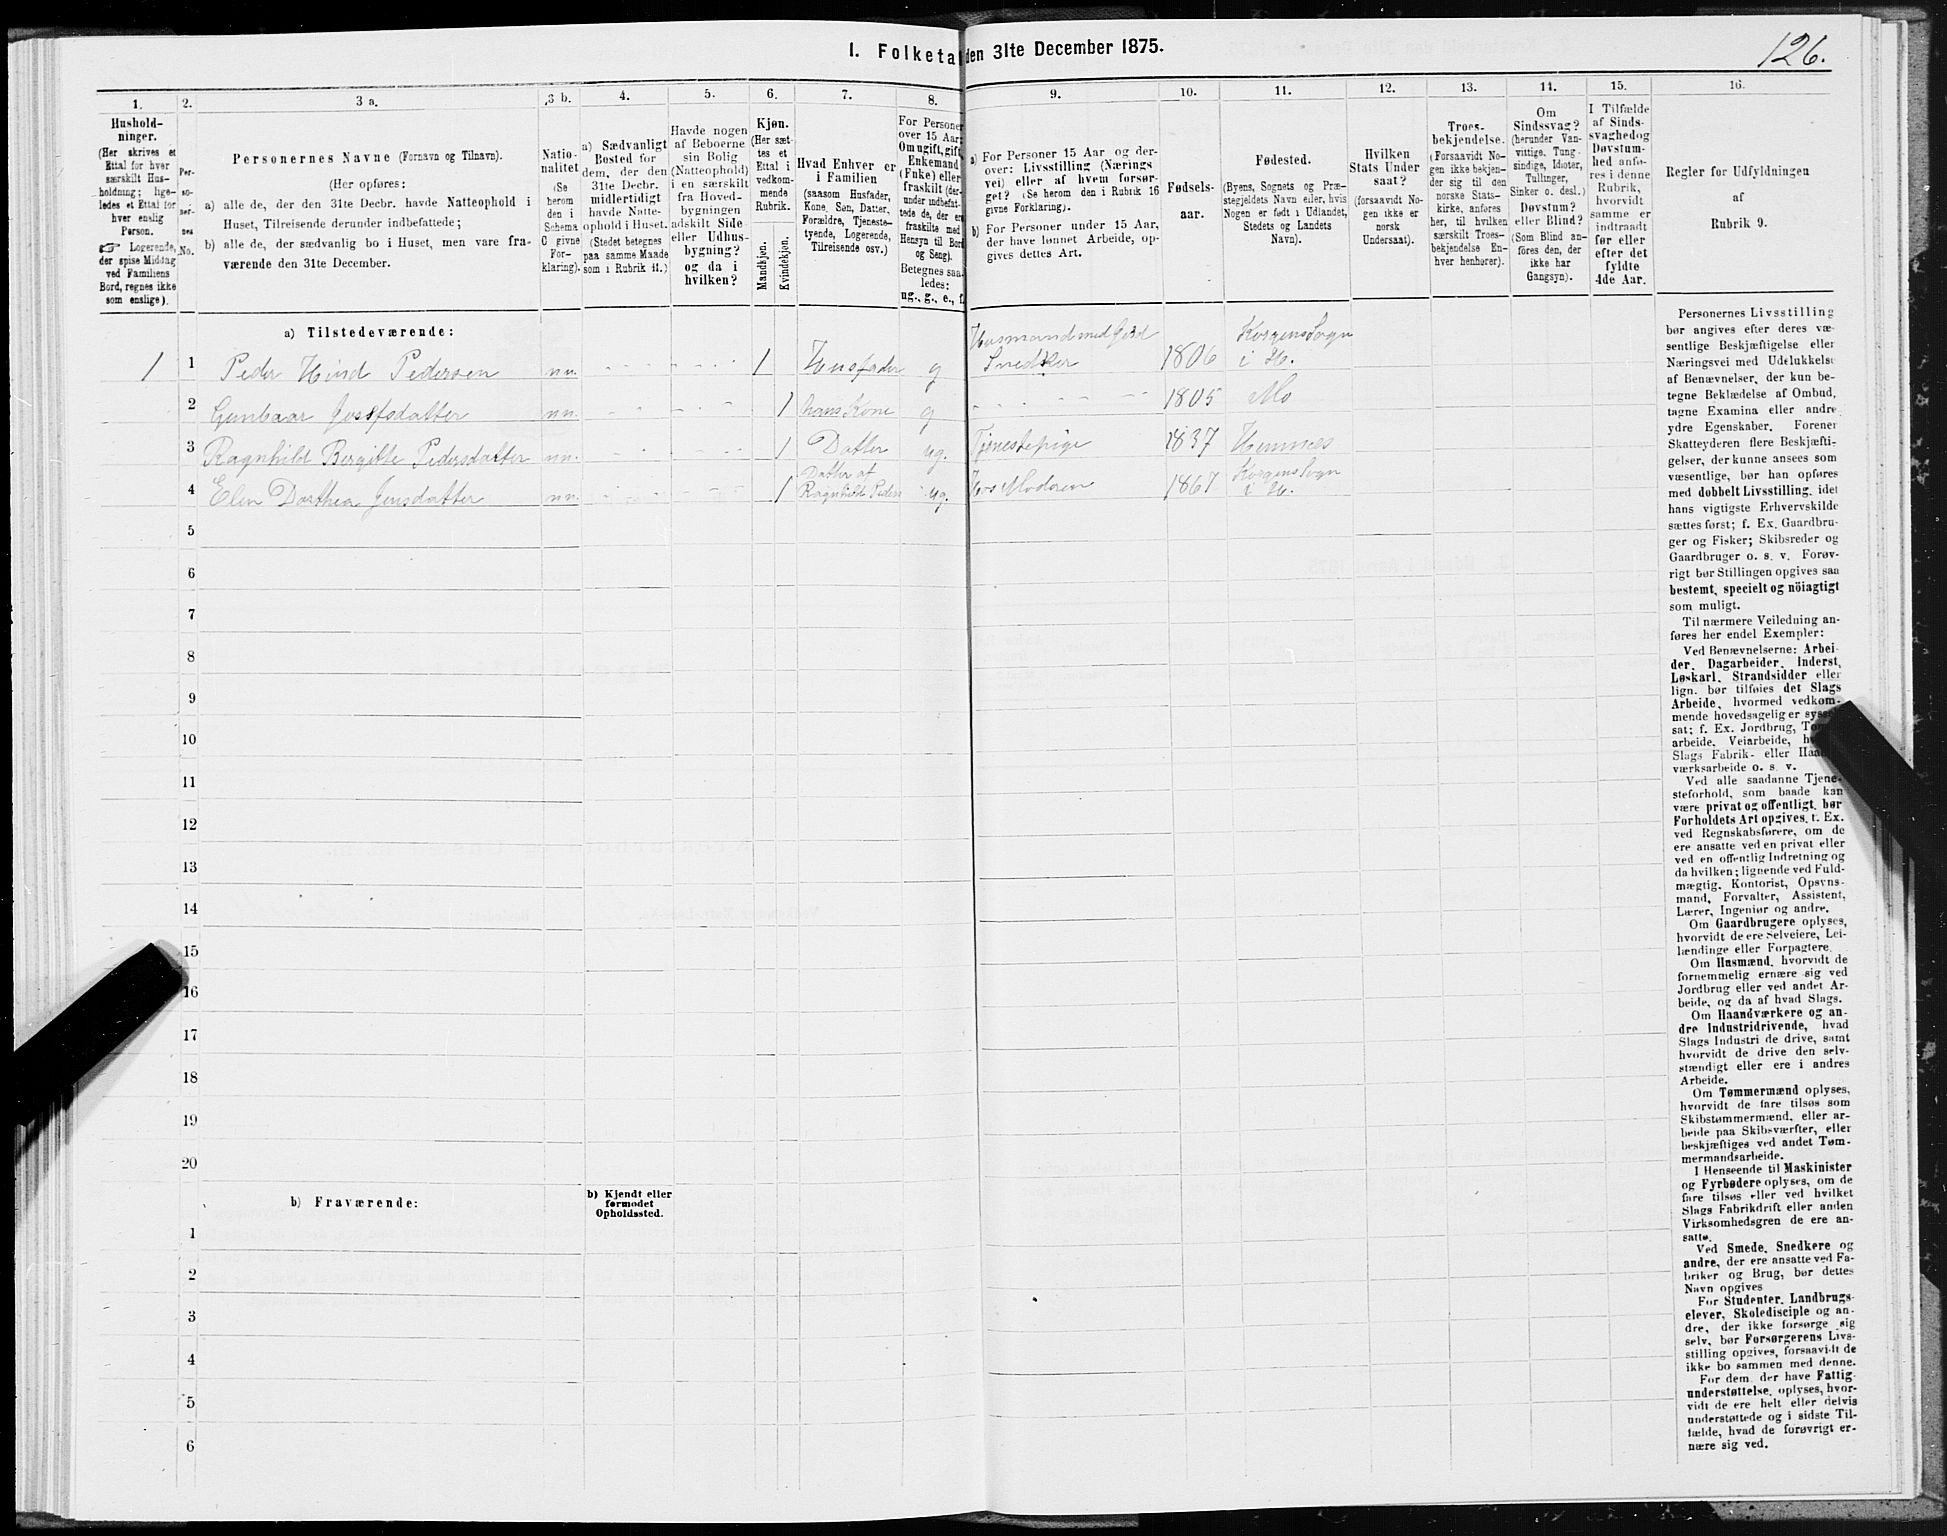 1. Folketa
den 31te December 1875.
126.
1.
2.
3 a.
3 b.
4.
5.
6.
7.
8.
9.
10.
11.
12.
13.
14.
15.
16.
Hushold-
ninger.
(Her skrives et
Ettal for hver
særskilt Hus-
holdning; lige-
ledes et Ettal for
hver enslig
Person.
☞ Logerende,
der spise Middag
ved Familiens
Bord, regnes ikke
som enslige).
Per-
so-
ner-
nes
No.
Personernes Navne (Fornavn og Tilnavn).
(Her opføres:
a) alle de, der den 31te Decbr. havde Natteophold i
Huset, Tilreisende derunder indbefattede;
b) alle de, der sædvanlig bo i Huset, men vare fra-
værende den 31te December.
Natio-
nalitet
(Se
herom
den i
Schema
C givne
For-
klaring).
a) Sædvanligt
Bosted for
dem, der den
31te Decbr.
midlertidigt
havde Natte-
ophold i Huset.
(Stedet betegnes
paa samme Maade
som i Rubrik 11.)
Havde nogen
af Beboerne
sin Bolig
(Natteophold)
i en særskilt
fra Hoved-
bygningen
adskilt Side
eller Udhus-
bygning?
og da i
hvilken?
Kjøn.
(Her sæt-
tes et
Ettal i
vedkom-
mende
Rubrik.
Mandkjøn.
Kvindekjøn.
Hvad Enhver er
i Familien
(saasom Husfader,
Kone, Søn, Datter,
Forældre, Tjeneste-
tyende, Logerende,
Tilreisende osv.)
For Personer
over 15 Aar:
Om ugift, gift,
Enkemand
(Enke) eller
fraskilt (der-
under indbefat-
tede de, der er
fraskilte med
Hensyn til Bord
og Seng).
Betegnes saa-
ledes:
ug., g., e., f.
a) For Personer 15 Aar og der-
over: Livsstilling (Nærings
vei) eller af hvem forsør-
get? (Se herom den i Rubrik 16
givne Forklaring).
b) For Personer under 15 Aar,
der have lønnet Arbeide, op-
gives dettes Art.
Fødsels-
aar.
Fødested.
(Byens, Sognets og Præ-
stegjeldets Navn eller, hvis
Nogen er født i Udlandet,
Stedets og Landets
Navn).
Hvilken
Stats Under
saat?
(forsaavidt No-
gen ikke er
norsk
Undersaat).
Troes-
bekjendelse.
(Forsaavidt No-
gen ikke bekjen-
der sig til den
norske Stats-
kirke, anføres
her, til hvilken
særskilt Troes-
bekjendelse En-
hver henhører).
Om
Sindssvag?
(herunder Van-
vittige, Tung-
sindige, Idioter,
Tullinger,
Sinker o. desl.)
Døvstum?
eller Blind?
(Som Blind an-
føres den, der
ikke har
Gangsyn).
I Tilfælde
af Sinds-
svaghed og
Døvstum-
hed anfø-
res i denne
Rubrik,
hvorvidt
samme er
indtraadt
før eller
efter det
fyldte
4de Aar.
Regler for Udfyldningen
af
Rubrik 9.
a) Tilstedeværende:
1 1 Peder Hind Pedersen nn. 1 Husfader g Husmand med Jord Snedker 1806 Korgens Sogn i H.
2 Gunbaar Josefsdatter nn. 1 hans Kone g 1805 Mo
3 Ragnhild Bergitte Pedersdatter nn. 1 Datter ug. Tjenestepige 1837 Hemnes
4 Elen Dorthea Jensdatter nn. 1 Datter af Ragnhild Peders ug. Hos Moderen 1867 Korgens Sogn i H.
5
6
7
8
9
10
11
12
13
14
15
16
17
18
19
20
b) Fraværende:
b) Kjendt eller
formodet
Opholdssted.
1
2
3
4
5
6
Personernes Livsstilling
bør angives efter deres væ-
sentlige Beskjæftigelse eller
Næringsvei med Udelukkelse
af Benævnelser, der kun be-
tegne Beklædelse af Ombud,
tagne Examina eller andre
ydre Egenskaber. Forener
Skatteyderen flere Beskjæfti-
gelser, der kunne ansees som
væsentlige, bør han opføres
med dobbelt Livsstilling, idet
hans vigtigste Erhvervskilde
sættes først; f. Ex. Gaardbru-
ger og Fisker; Skibsreder og
Gaardbruger o. s. v. Forøv-
rigt bør Stillingen opgives saa
bestemt, specielt og nöiagtigt
som muligt.
Til nærmere Veiledning an-
føres her endel Exempler:
Ved Benævnelserne: Arbei-
der, Dagarbeider, Inderst,
Løskarl, Strandsidder eller
lign. bør tilføies det Slags
Arbeide, hvormed vedkom-
mende hovedsagelig er syssel-
sat; f. Ex. Jordbrug,
arbeide, Veiarbeide,
Slags Fabrik- eller
værksarbeide o. s. v.
Ved alle saadanne Tjene-
steforhold, som baade kan
være privat og offentligt, bør
Forholdets Art opgives, f. Ex.
ved Regnskabsførere, om de
ere ansatte ved en privat eller
ved en offentlig Indretning og
da hvilken; lignende ved Fuld-
mægtig, Kontorist, Opsyns-
mand, Forvalter, Assistent,
Lærer, Ingeniør og andre.
Om Gaardbrugere oplyses,
hvorvidt de ere Selveiere, Lei-
lændinge eller Forpagtere.
Om Husmænd, hvorvidt de
fornemmelig ernære sig ved
Jordbrug eller ved andet Ar-
beide, og da af hvad Slags.
Om Haandværkere og an-
dre Industridrivende, hvad
Slags Industri de drive, samt
hvorvidt de drive den selv-
stændigt eller ere i andres
Arbeide.
Om Tømmermænd oplyses,
hvorvidt de fare tilsøs som
Skibstømmermænd, eller ar-
beide paa Skibsværfter, eller
beskjæftiges ved andet Tøm-
mermandsarbeide.
I Henseende til Maskinister
og Fyrbødere oplyses, om de
fare tilsøs eller ved hvilket
Slags Fabrikdrift eller anden
Virksomhedsgren de ere an-
satte.
Ved Smede, Snedkere og
andre, der ere ansatte ved Fa-
briker og Brug, bør dettes
Navn opgives
For Studenter, Landbrugs-
elever, Skoledisciple og an-
dre, der ikke forsørge sig
selv, bør Forsørgerens Livs-
stilling opgives, forsaavidt de
ikke bo sammen med denne.
For dem, der have Fattig-
understøttelse, oplyses, hvor-
vidt de ere helt eller delvis
understøttede og i sidste Til-
fælde, hvad de forøvrigt er-
nære sig ved.